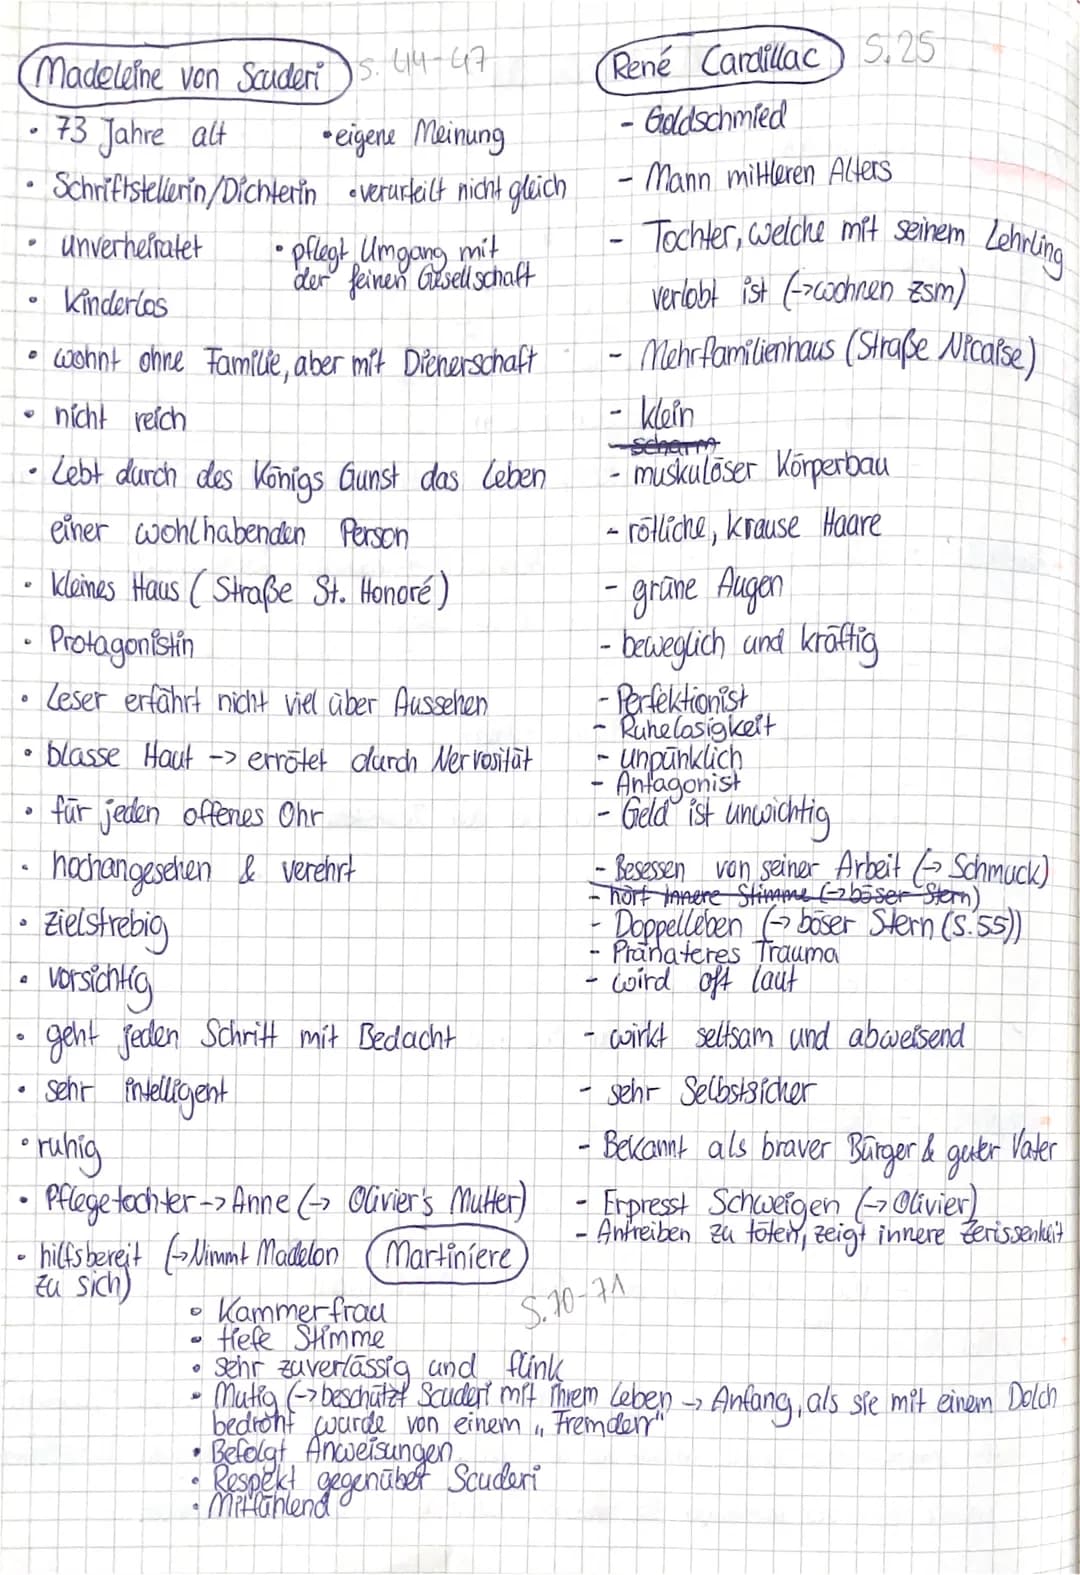 Madeleine von Scuderi S. 44-47
• 73 Jahre alt
• eigene Meinung
• Schriftstellerin/Dichterin
• verurteilt nicht gleich
• unverheiratet
• pflegt Umgang mit
der feinen Gesellschaft
• Kinderlos
• wohnt ohne Familie, aber mit Dienerschaft
• nicht reich
• Lebt durch des Königs Gunst das Leben
einer wohlhabenden Person
• kleines Haus (Straße St. Honoré)
• Protagonistin
• Leser erfährt nicht viel über Aussehen
• blasse Haut -> errötet durch Nervosität
• für jeden offenes Ohr
• hochangesehen & verehrt
• zielstrebig
• vorsichtig
• geht jeden Schritt mit Bedacht
• sehr intelligent
• ruhig
• Pflegetochter -> Anne (-> Olivier's Mutter)
• hilfsbereit (->Nimmt Madelon
zu sich)
René Cardillac S. 25
- Goldschmied
- Mann mittleren Alters
- Tochter, welche mit seinem Lehrling
verlobt ist (->wohnen zsm)
- Mehrfamilienhaus (Straße Nicaise)
- klein
- muskulöser Körperbau
- rötliche, krause Haare
- grüne Augen
- beweglich und kräftig
- Perfektionist
- Ruhelosigkeit
- unpünklich
- Antagonist
- Geld ist unwichtig
- Besessen von seiner Arbeit (-> Schmuck)
- hört innere Stimme (->böser Stern)
- Doppelleben (-> böser Stern (S. 55))
- Pränateres Trauma
- wird oft laut
- wirkt seltsam und abweisend
- sehr Selbstsicher
- Bekannt als braver Bürger & guter Vater
- Erpresst Schweigen (-> Olivier)
- Antreiben zu töten, zeigt innere Zerissenheit
Martiniere
S. 70-71
• Kammerfrau
• tiefe Stimme
• sehr zuverlässig und flink
• Mutig (->beschützt Scuderi mit ihrem Leben -> Anfang, als sie mit einem Dolch
bedroht wurde von einem „Fremden"
• Befolgt Anweisungen
• Respekt gegenüber Scuderi
• Mitfühlend